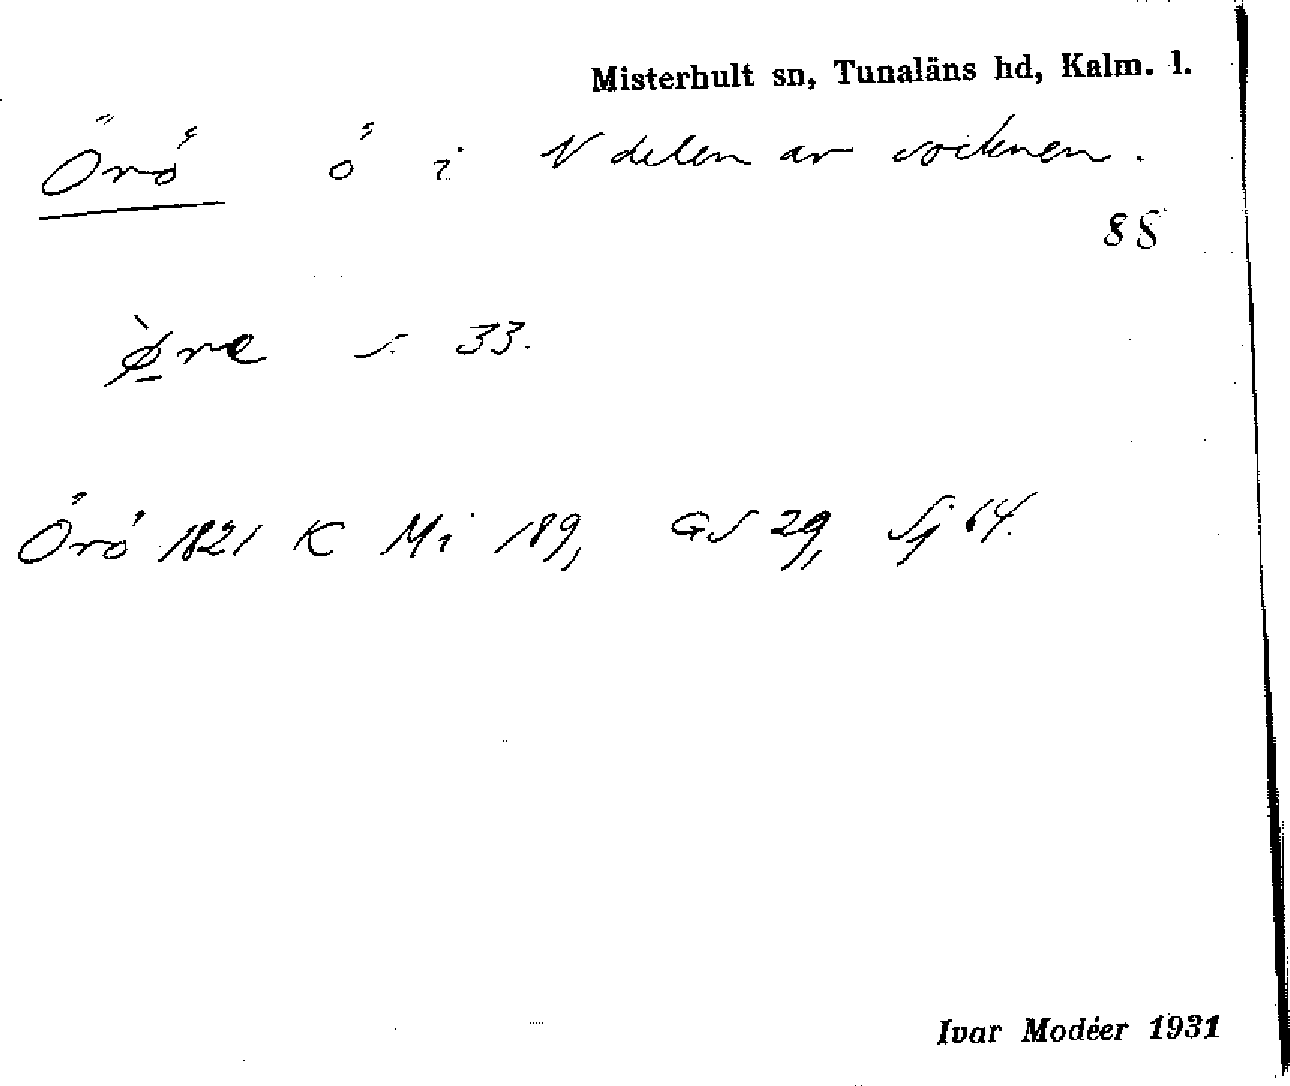 Misterhult sn, Tunaläns hd, Kalm. l.
Örö ö i N delen av socknen.
88
ø̀re s. 33.
Örö 1821 K Mi 189, GS 29, Sj 64.
Ivar Modéer 1931